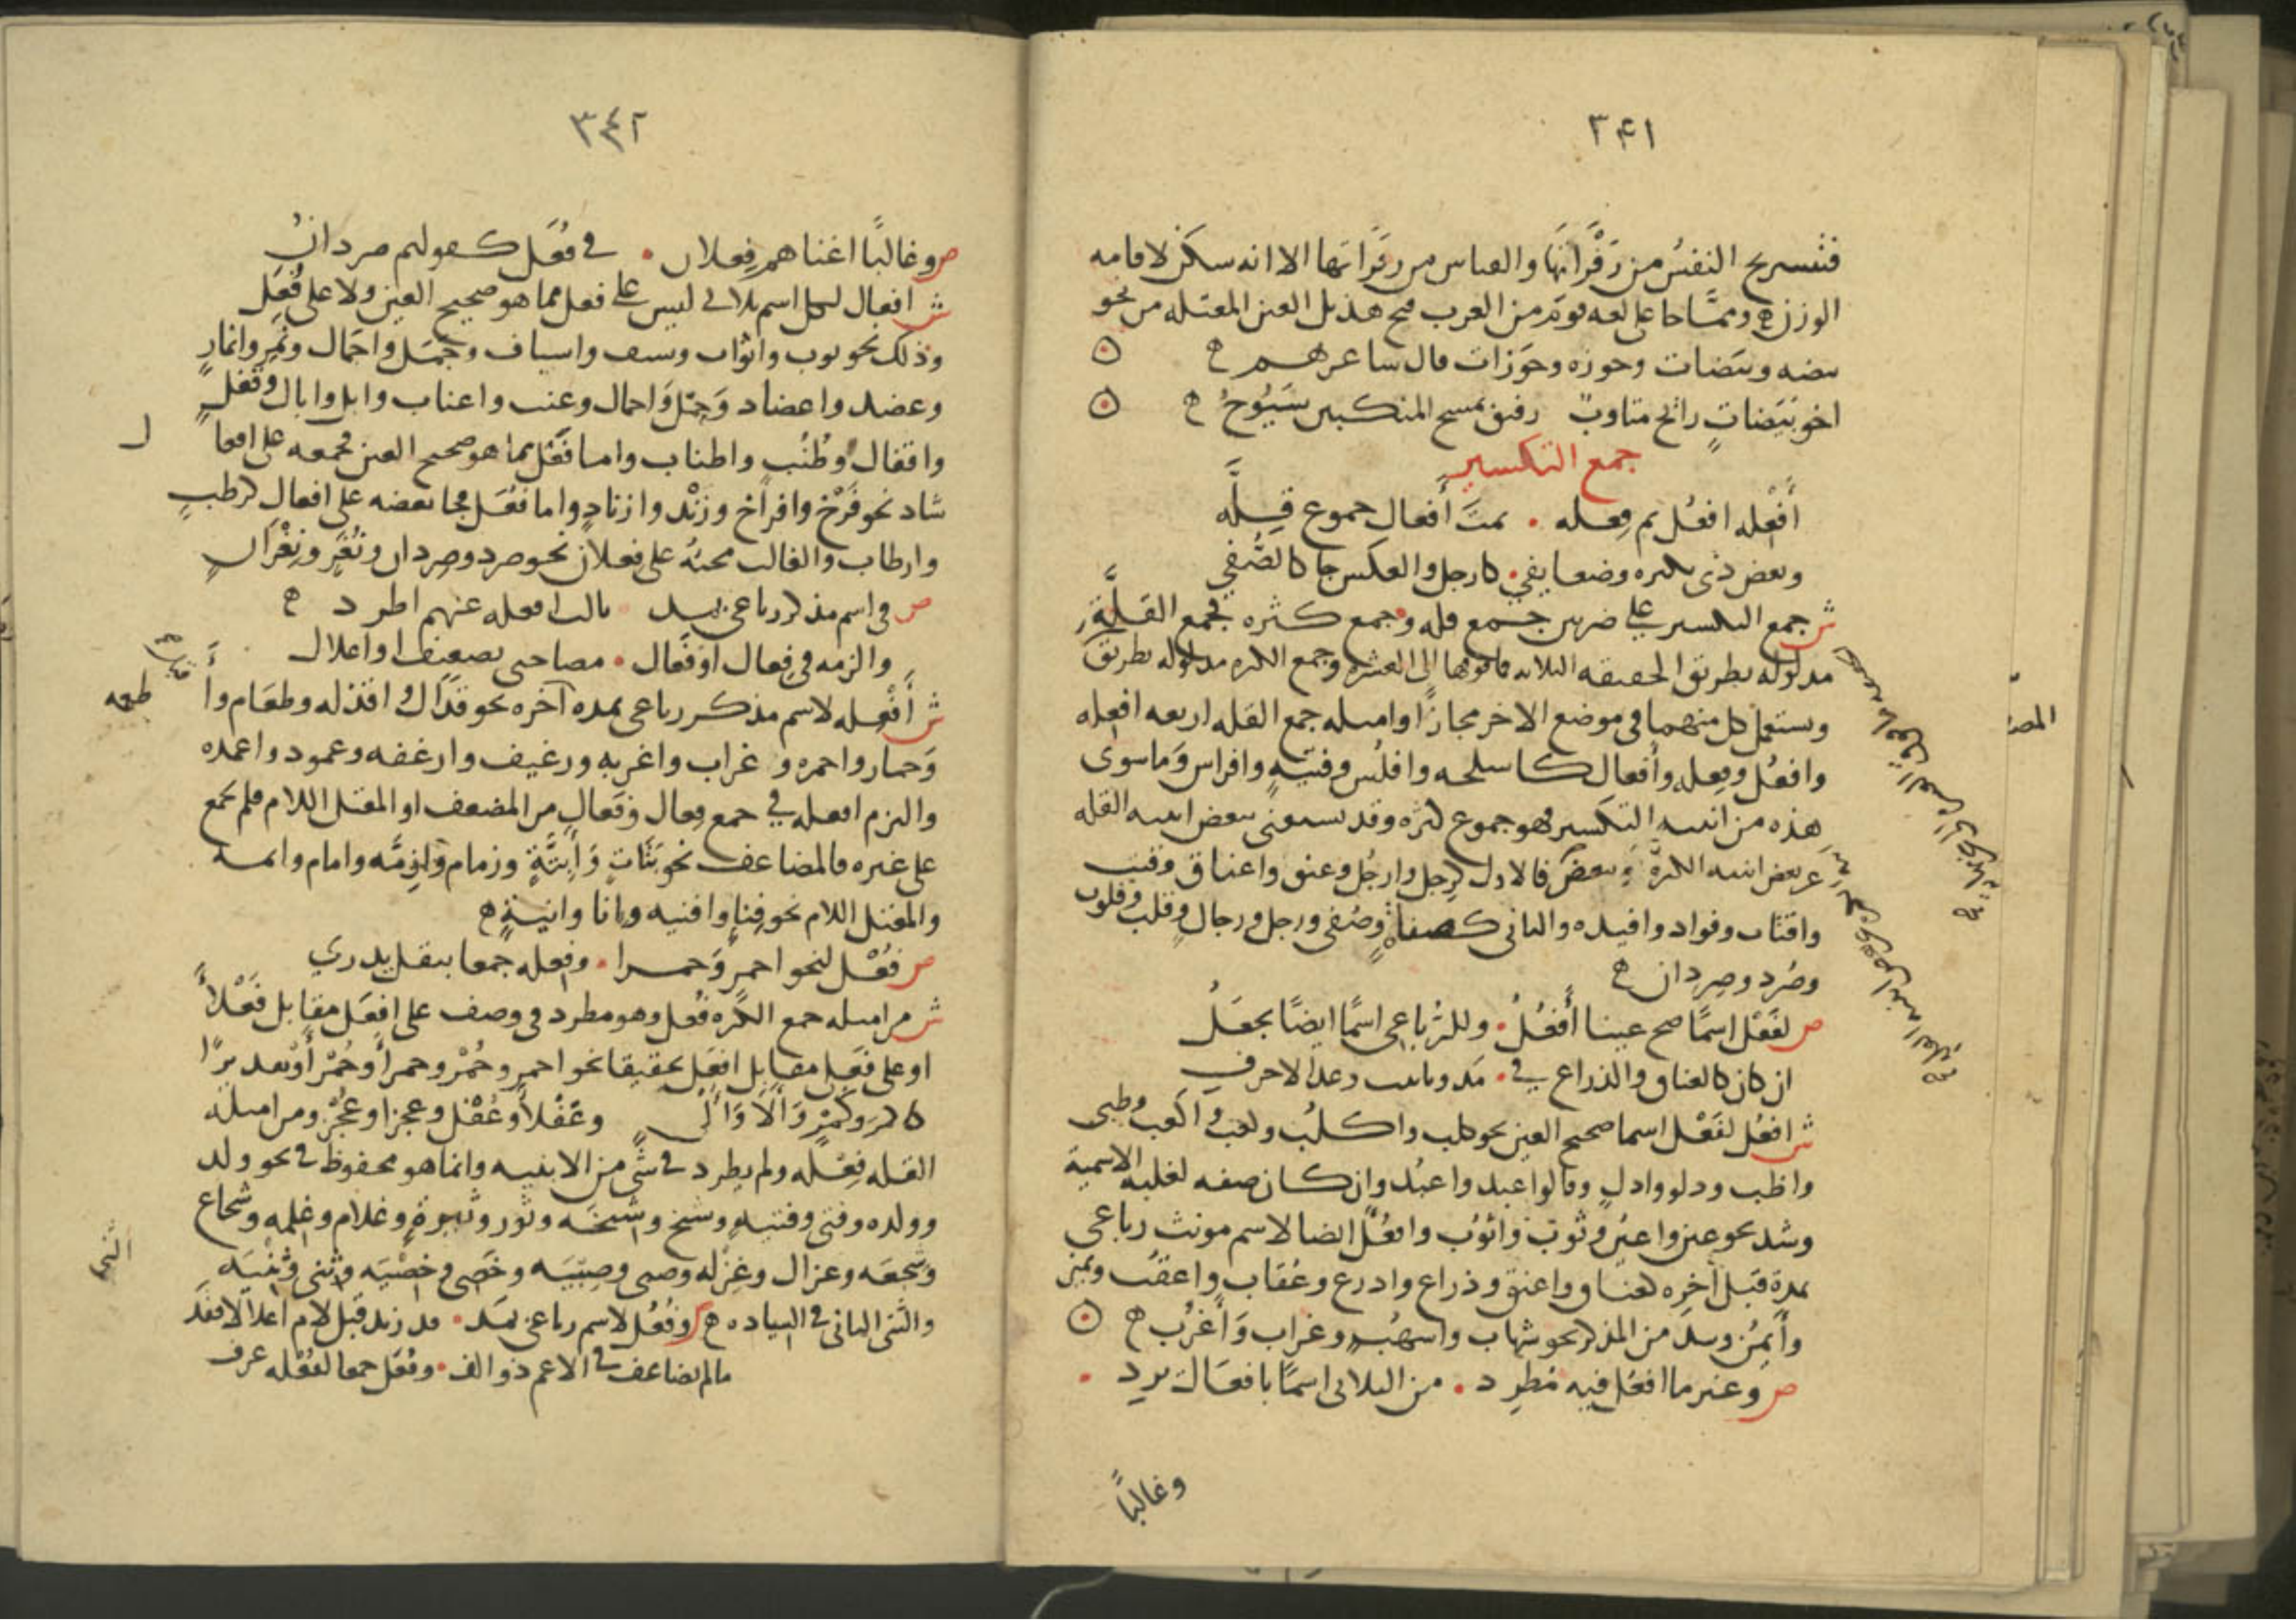 ٣٤١
فتستريح النفس من زفراتها والقياس من زفراتها الا انه سكن لاقامه
الوزن ومما جا على لغه قوم من العرب فتح هذيل العين المعتله من نحو
بيضه وبيضات وجوزه وجوزات قال شاعرهم
اخو بَيَضات رائح متاوب رفيق بمسح المنكبين سبوح
جمع التكسير
أفعله افعُل ثم فعله ٠ ثمت أفعال جموع قِلَّه
وبعض ذي بكثره وضعا يفي ٠ كارجل والعكس جا كالصُّفي
ش جمع التكسير على ضربين جمع قله وجمع كثره فجمع القِلَّة
مدلوله بطريق الحقيقه الثلاثه فما فوقها الى العشره وجمع الكثره مدلوله بطريق
ويستعمل كل منهما في موضع الاخر مجازا وامثله جمع القله اربعه افعله
وافعُل وفِعله وأفعال كاسلحه وافلُس وفتيةٍ وافراس وما سوى
هذه من ابنيه التكسير فهو جموع كثره وقد يستغنى ببعض ابنيه القله
عن بعض ابنيه الكثرة وبعض فالاول كرجل وارجُل وعنق واعناق وقتب
واقتاب وفواد وافيده والثاني كصفاةٍ وصُفى ورجل ورجال وقلب وقلوب
وصُرد وصِردان
ص لفَعْل اسمًا صح عينا أفعُلُ ٠ وللرُّباعي اسمًا ايضًا يجعَلُ
ان كان كالعناق والذراع في ٠ مَد وتانيث وعد الاحرف
ش افعُل لفَعْل اسما صحيح العين نحو كلب واكلُب وكعب واكعب وظبي
واظب ودلو وادلٍ وقالوا عبد واعبُد وان كان صفه لغلبه الاسمية
وشذ نحو عين واعيُن وثوب واثوُب وافعُل ايضا لاسم مونث رباعي
بمدة قبل آخره كعناق واعنق وذراع واذرع وعُقاب واعقُب ويمين
وأيمُن وشذ من المذكر نحو شهاب واشهُب وغراب وأغرُب
ص وغير ما افعُل فيه مُطرِد ٠ من الثلاثي اسمًا بافعَال يَرِد ٠
وغالبًا
٣٤٢
ص وغالبًا اغناهم فِعلان ٠ في فُعَل كقولهم صردانُ
ش افعال لكل اسم ثلاثي ليس على فعل مما هو صحيح العين ولا على فُعَل
وذلك نحو ثوب واثواب وسيف واسياف وجَمَل واجمال ونَمِر وانمارٍ
وعضد واعضاد وحِمْل واحمال وعنب واعناب وابل وابال وقُفلٍ
واقفال وطُنُب واطناب واما فَعْل مما هو صحيح العين فجمعه على افعا ل
شاد نحو فَرْخ وافراخ وزَنْد وازنادٍ واما فُعَل فجا بعضه على افعال كرطبٍ
وارطاب والغالب مجيئُه على فعلان نحو صرد وصِردان ونُغَر ونِغْرانٍ
ص في اسم مذكر رباعي بمد ٠ ثالث افعله عنهم اطرد
والزمه في فِعال او فَعال ٠ مصاحبي تضعيف او اعلال
ش أَفْعِله لاسم مذكر رباعي بمده آخره نحو قَذال واقذله وطعَام وأ طعمه
وحمار واحمره وغراب واغربه ورغيف وارغفه وعمود واعمده
والتزم افعله في جمع فِعال وفَعالٍ من المضعف او المعتل اللام فلم يجمع
على غيره فالمضاعف نحو بَتَاتٍ وأَبِتَّةٍ وزمام وازِمَّه وامام وائمه
والمعتل اللام نحو فِناءٍ وافنيه واناء وانيةٍ
ص فُعْل لنحو احمرٍ وَحمرا ٠ وفعله جمعا بنقل يدري
ش من امثله جمع الكثره فُعل وهو مطرد في وصف على افعَل مقابل فَعْلاءَ
او على فَعلى مقابل افعَل تحقيقا نحو احمر وحُمْر وحمرا وحُمْر أو تقديرًا
كاكمر وكُمْرٍ وآلا وأُلْيٍ وعَفْلاء وعُفْل وعجزا وعُجْز ومن امثله
القله فِعْله ولم يطرد في شي من الابنيه وانما هو محفوظ في نحو ولد
وولده وفتى وفتيه وشيخ وشيخه وثور وثِيرةٍ وغلام وغلمه وشجاع
وشِجعه وغزال وغِزله وصبى وصِبْيَه وخَصى وخِصْيَه وثنى وثِنْيَه
والثنى الثاني في السياده ص وفُعُل لاسم رباعي بمَد ٠ قد زيد قبل لام اعلالا فقَد
ما لم يضاعف في الاعم ذو الالف ٠ وفُعَل جمعا لفُعْله عرف